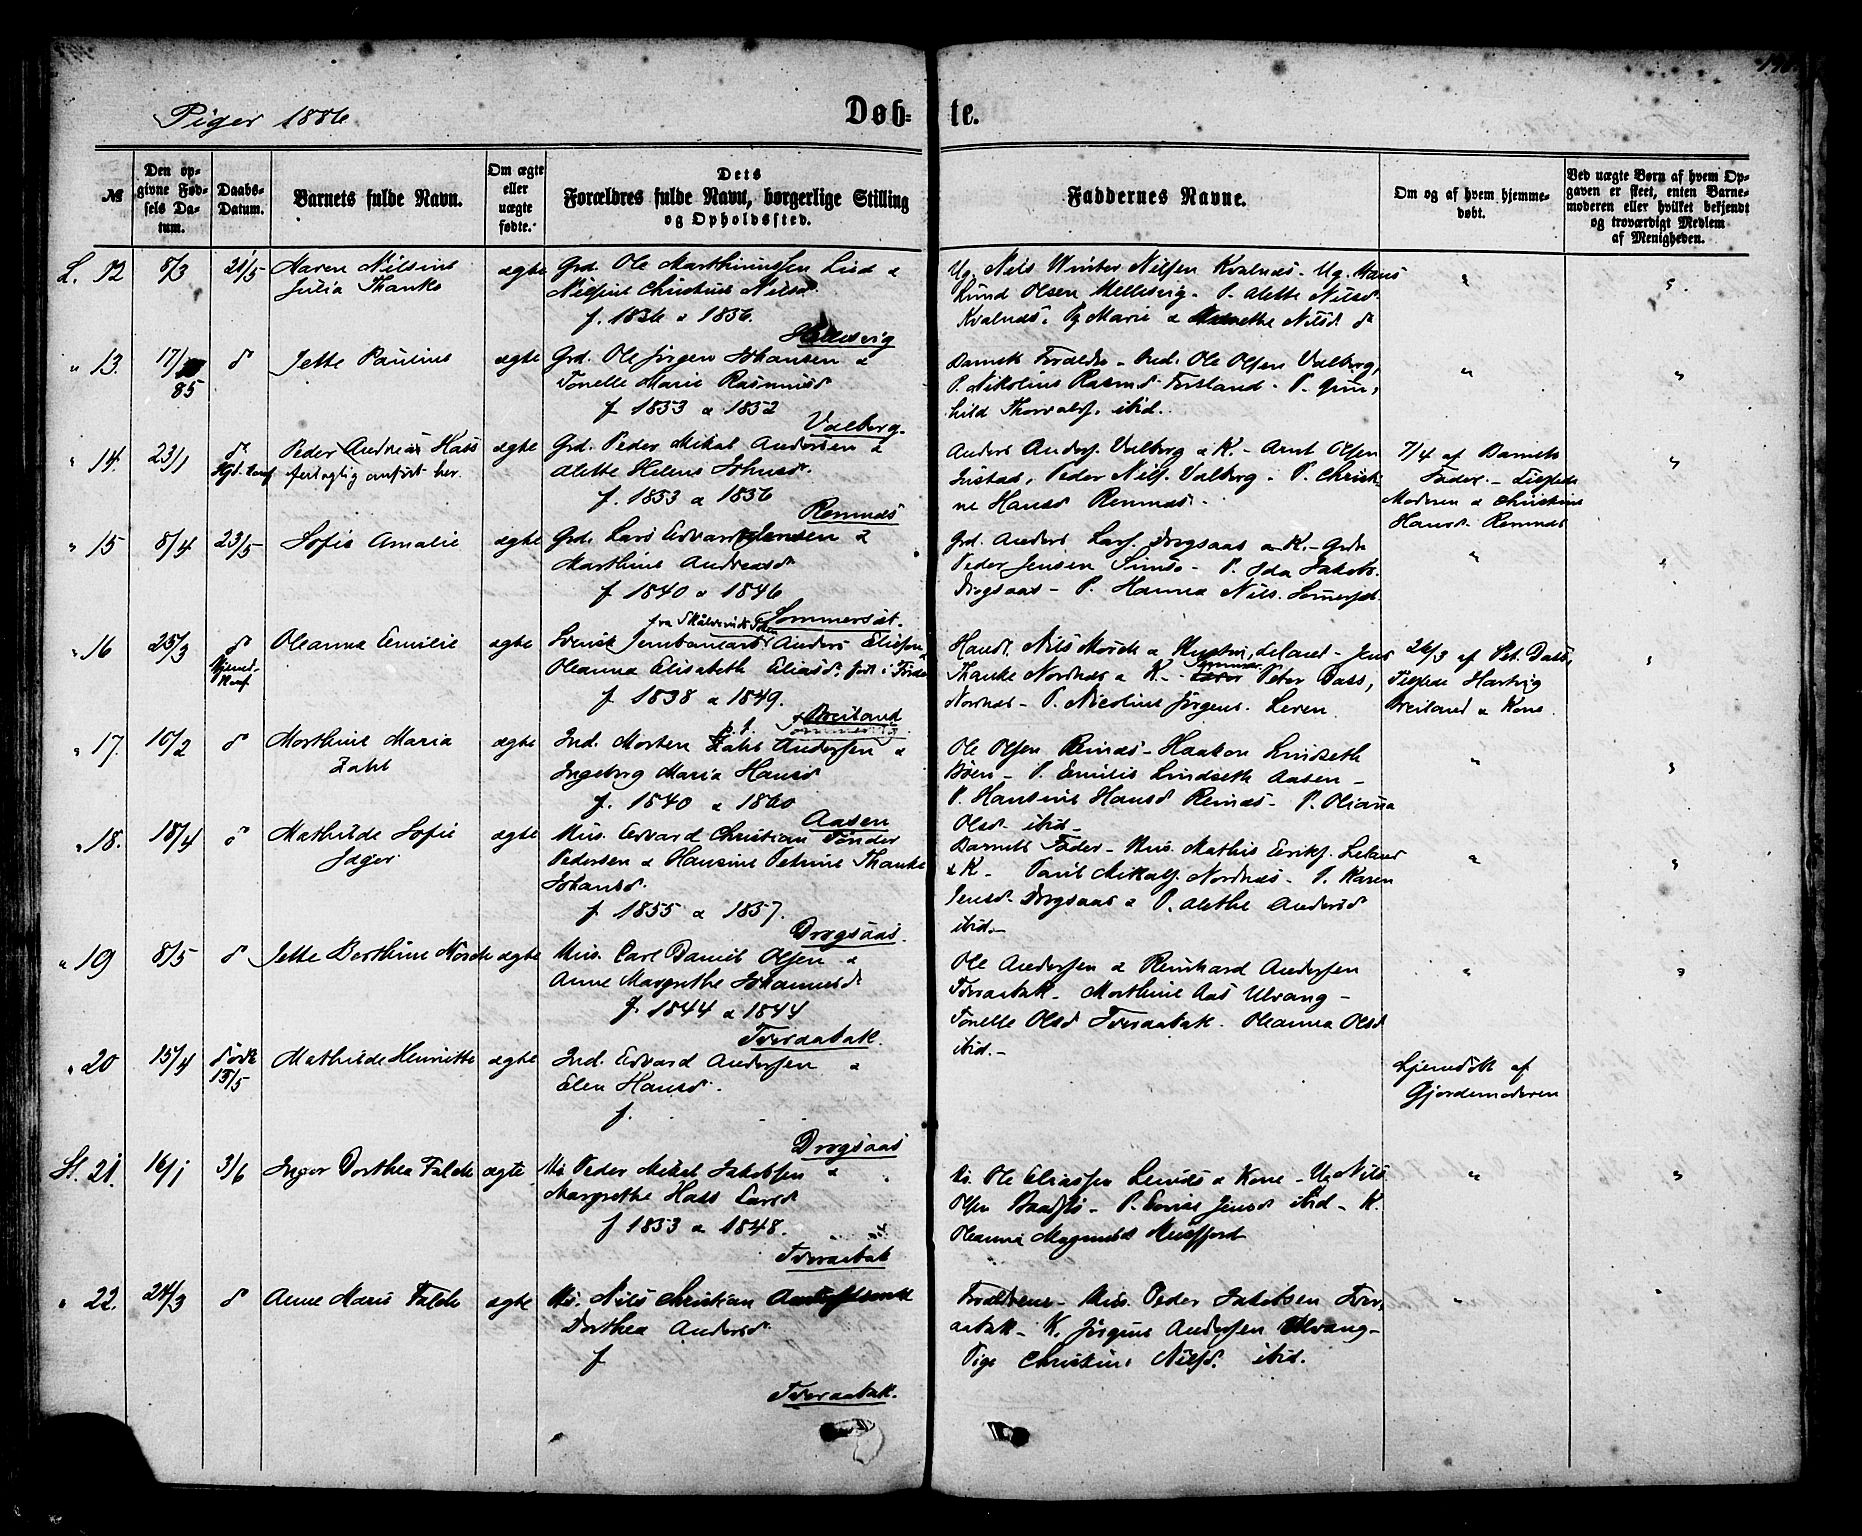 Piger 1886
Døb-te.
№
Den opgivne Fødsels Datum.
Daabs-Datum.
Barnets fulde Navn.
Om ægte eller uægte fødte.
Dets Forældres fulde Navn, borgerlige Stilling og Opholdssted.
Faddernes Navne.
Om og af hvem hjemmedøbt.
Ved uægte Børn af hvem Opgaven er skeet, enten Barnemoderen eller hvilket bekjendt og troværdigt Medlem af Menigheden.
L. 12 8/3 21/5 Maren Nilsine ægte Grd. Ole Marthinussen Lied &
Julia Thanke Nilsine Christine Nilsd.
f. 1836 & 1836.
Hellesvig
Ug. Nils Winter Nilsen Kvalnæs - Ug. Hans
Lund Olsen Hellesvig - P. Alette Nilsd.
Kvalnæs. Pg Marie &
" 13. 17/ 85 d Jette Pauline ægte Grd. Ole Jørgen Johansen &
Tonelle Marie Rasmusd
f 1853 & 1852
Valberg.
Barnets Forældre - Ind. Ole Olsen Valberg,
P. Nikoline Rasmd. Forsland - P. Gun-
hild Thorvalds. ibid.
" 14. 23/1 d Peder Andreas Hass ægte Grd. Peder Mikal Andersen &
feilagtig anført her. Alette Helene Johnsd.
f. 1853 & 1856
Remnæs
Anders Anders. Valberg & K. - Arnt Olsen
Justad, Peder Nils. Valberg - P. Christi-
ne Hansd Remnæs.
7/4 af Barnets
Fader. - Tilstede
Moderen & Christine
Hansd. Remnæs
" 15 8/4 23/5 Sofie Amalie ægte Grd. Lars Edvard Jensen &
Marthine Andreasd.
f 1840 & 1846
Sommersæt.
Grd. Anders Lars. Drogsaas & K. - Grd.
Peder Jensen - P. Ida Jakobs.
Drogsaas - P. Hanna Nils. Somersæt
" 16 25/3 d Oleanna Emilie ægte Svensk Anders Eliesen
Oleanna Elisabeth Eliasd.
f 1838 & 1849.
Breiland
Handl. Nils Morch & Hustru, Leland - Jens
Thanke Nordnæs & K. - Peter Dass,
Nordnæs - P. Nicoline Jørgens. Leren
26/3 af Pet. Dass,
Tilstede Hartvig
Breiland & Kone.
" 17. 16/2 d Marthine Maria ægte Ind. Morten Zahl Andersen &
Zahl Ingeborg Maria Hansd
f. 1840 & 1860
Aasen
Ole Olsen Remnæs - Haakon Lindseth
Bøen - P. Emilie Lindseth Aasen -
P. Hansine Hansd Remnæs - P. Oliana
Olsd. ibid -
" 18. 18/4 d Mathilde Sofie ægte Hus. Edvard Christian Tønder
Jæger Pedersen & Hansine Petrine Thanke
Johansd.
f 1855 & 1857.
Drogsaas.
Barnets Fader - Hus. Mathis Eriks. Leland
& K. - Paul Mikals. Nordnæs - P. Karen
Jensd. Drogsaas & P. Alethe Andersd
ibid. -
" 19 8/5 d Jette Berthine Morch ægte Hus. Carl Daniel Olsen &
Anne Margrethe Johannesd
f. 1844 & 1844
Tveraabak.
Ole Andersen & Reinhard Andersen
Tveraabak - Morthine Aas Ulvang -
Tonelle Olsd Tveraabak. Oleanna Olsd
ibid. -
" 20 15/4 døde 15/5 Mathilde Henriette ægte Ind. Edvard Andersen &
Elen Hansd.
f.
Drogsaas
hjemdøbt af
Gjordemoderen
St. 21. 16/1 3/6 Inger Dorthea Falch ægte Hs. Peder Mikal Jakobsen &
Margrethe Hass Larsd
f 1853 & 1848.
Tveraabak
Hs. Ole Eliassen Leinæs & Kone - Ug Nils
Olsen - P. Lovise Jensd ibid - K.
Oleanna Magnusd Meisfjord
" 22. 24/3 d Anne Marie Falch ægte Hs. Nils Christian
Dorthea Andersd.
f
Tveraabak.
Forældrene - Hus. Peder Jakobsen Tver-
aabak - K. Jørgine Andersen Ulvang -
Pige Christine Nilsd. ibid.